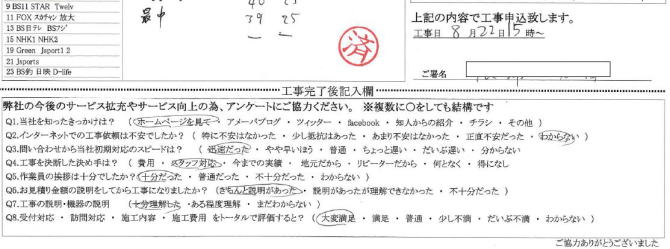 9 BS11 STAR Twelv
11 FOX スカチャン 放大
39 25
13 BS日テレ BSフジ
15 NHK1 NHK2
19 Green Jsport1 2
21 Jsports
23 BS釣 日映 D-life
済
上記の内容で工事申込致します。
工事日 8月22日15時~
ご署名
工事完了後記入欄
弊社の今後のサービス拡充やサービス向上の為、アンケートにご協力ください。 ※複数に〇をしても結構です
Q1.当社を知ったきっかけは? ( ホームページを見て ・ アメーバブログ ・ ツイッター ・ facebook ・ 知人からの紹介 ・ チラシ ・ その他 )
Q2.インターネットでの工事依頼は不安でしたか? ( 特に不安はなかった ・ 少し抵抗はあった ・ あまり不安はなかった ・ 正直不安だった ・ わからない )
Q3.問い合わせから当社初期対応のスピードは? ( 迅速だった ・ やや早いほう ・ 普通 ・ ちょっと遅い ・ だいぶ遅い ・ 分からない )
Q4.工事を決断した決め手は? ( 費用 ・ スタッフ対応 ・ 今までの実績 ・ 地元だから ・ リピーターだから ・ 何となく ・ 特になし )
Q5.作業員の挨拶は十分でしたか? ( 十分だった ・ 普通だった ・ 不十分だった ・ わからない )
Q6.お見積り金額の説明をしてから工事になりましたか? ( きちんと説明があった ・ 説明があったが理解できなかった ・ 不十分だった )
Q7.工事の説明・機器の説明 ( 十分理解した ・ ある程度理解 ・ まだわからない )
Q8.受付対応 ・ 訪問対応 ・ 施工内容 ・ 施工費用 をトータルで評価すると? ( 大変満足 ・ 満足 ・ 普通 ・ 少し不満 ・ だいぶ不満 ・ わからない )
ご協力ありがとうございました